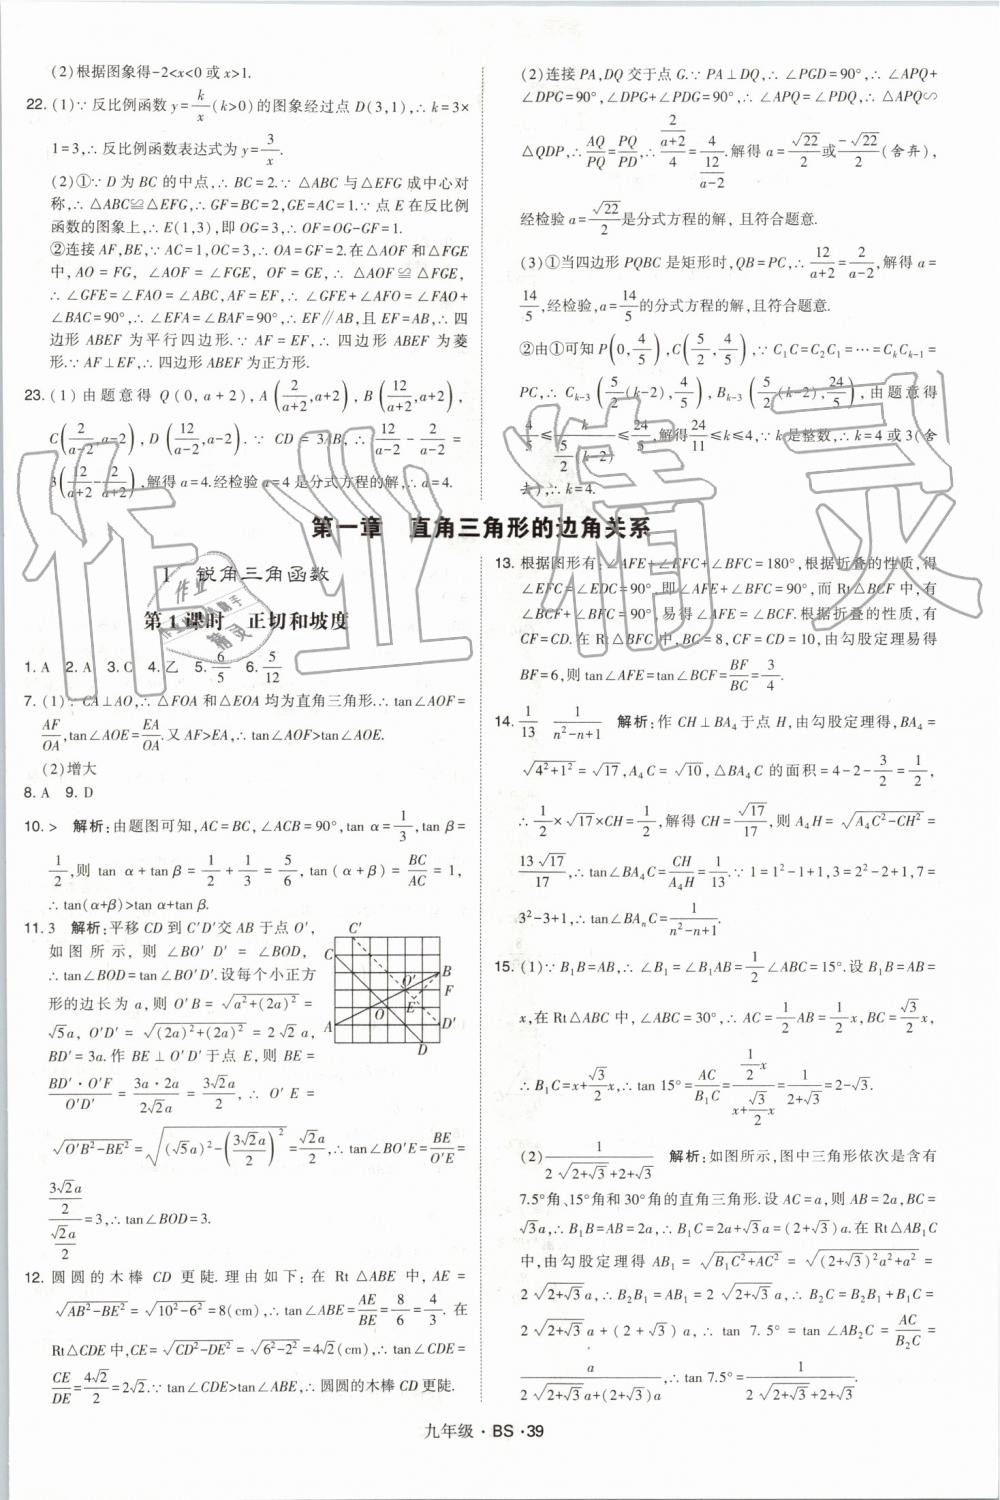 (2)根据图象得-2<x<0或x>1.
22. (1)∵反比例函数y=k/x(k>0)的图象经过点D(3,1),∴k=3×
1=3,∴反比例函数表达式为y=3/x.
(2)①∵D为BC的中点,∴BC=2.∵△ABC与△EFG成中心对
称,∴△ABC≌△EFG,∴GF=BC=2,GE=AC=1.∵点E在反比例
函数的图象上,∴E(1,3),即OG=3,∴OF=OG-GF=1.
②连接AF,BE,∵AC=1,OC=3,∴OA=GF=2.在△AOF和△FGE
中,AO=FG,∠AOF=∠FGE,OF=GE,∴△AOF≌△FGE,
∴∠GFE=∠FAO=∠ABC,AF=EF,∴∠GFE+∠AFO=∠FAO+
∠BAC=90°,∴∠EAB=∠BAF=90°,∴EF∥AB,且EF=AB,∴四
边形ABEF为平行四边形.∵AF=EF,∴四边形ABEF为菱
形.∵AF⊥EF,∴四边形ABEF为正方形.
23. (1)由题意得Q(0,a+2),A(2/(a+2),a+2),B(12/(a+2),a+2),
C(2/(a-2),a-2),D(12/(a-2),a-2).∵CD=3AB,∴12/(a-2)-2/(a-2)=
3(12/(a+2)-2/(a+2)),解得a=4.经检验a=4是分式方程的解,∴a=4.
(2)连接PA,DQ交于点G.∵PA⊥DQ,∴∠PGD=90°,∴∠APQ+
∠DPG=90°,∠DPG+∠PDG=90°,∴∠APQ=∠PDG,∴△APQ∽
△QDP,∴AQ/PQ=PQ/PD,∴(2/(a+2))/4=4/(12/(a-2)).解得a=√22/2或-√22/2(舍弃),
经检验a=√22/2是分式方程的解,且符合题意.
(3)①当四边形PQBC是矩形时,QB=PC,∴12/(a+2)=2/(a-2),解得a=
14/5,经检验,a=14/5的分式方程的解,且符合题意.
②由①可知P(0,4/5),C(5/2,4/5),∵C₁C=C₂C₁=…=CₖCₖ₋₁=
PC,∴Cₖ₋₃(5/2(k-2),4/5),Bₖ₋₃(5/2(k-2),24/5).由题意得
4/5≤k/(5/2(k-2))≤24/5.解得24/11≤k≤4,∵k是整数,∴k=4或3(舍
去),∴k=4.
第一章 直角三角形的边角关系
1 锐角三角函数
第1课时 正切和坡度
1. A 2. A 3. C 4. 乙 5. 6/5 6. 5/12
7. (1)∵CA⊥AO,∴△FOA和△EOA均为直角三角形.∴tan∠AOF=
AF/OA,tan∠AOE=EA/OA.又AF>EA,∴tan∠AOF>tan∠AOE.
(2)增大
8. A 9. D
10. > 解析:由题图可知,AC=BC,∠ACB=90°,tan α=1/3,tan β=
1/2,则 tan α+tan β=1/2+1/3=5/6,tan(α+β)=BC/AC=1,
∴tan(α+β)>tan α+tan β.
11. 3 解析:平移CD到C'D'交AB于点O',
如图所示,则∠BO'D'=∠BOD,
∴tan∠BOD=tan∠BO'D'.设每个小正方
形的边长为a,则O'B=√(a²+(2a)²)=
√5a,O'D'=√((2a)²+(2a)²)=2√2a,
BD'=3a.作BE⊥O'D'于点E,则BE=
BD'·O'F/O'D'=3a·2a/2√2a=3√2a/2,∴O'E=
√(O'B²-BE²)=√((√5a)²-(3√2a/2)²)=√2a/2,∴tan∠BO'E=BE/O'E=
(3√2a/2)/(√2a/2)=3,∴tan∠BOD=3.
C C' O' B F E A O D' D
12. 圆圆的木棒CD更陡.理由如下:在Rt△ABE中,AE=
√(AB²-BE²)=√(10²-6²)=8(cm),∴tan∠ABE=AE/BE=8/6=4/3.在
Rt△CDE中,CE=√(CD²-DE²)=√(6²-2²)=4√2(cm),∴tan∠CDE=
CE/DE=4√2/2=2√2.∵tan∠CDE>tan∠ABE,∴圆圆的木棒CD更陡.
13. 根据图形有:∠AFE+∠EFC+∠BFC=180°,根据折叠的性质,得
∠EFC=∠EDC=90°,即∠AFE+∠BFC=90°,而Rt△BCF中,有
∠BCF+∠BFC=90°,易得∠AFE=∠BCF.根据折叠的性质,有
CF=CD.在Rt△BFC中,BC=8,CF=CD=10,由勾股定理易得
BF=6,则tan∠AFE=tan∠BCF=BF/BC=3/4.
14. 1/13 1/(n²-n+1) 解析:作CH⊥BA₄于点H,由勾股定理得,BA₄=
√(4²+1²)=√17,A₄C=√10,△BA₄C的面积=4-2-3/2=1/2,
∴1/2×√17×CH=1/2,解得CH=√17/17,则A₄H=√(A₄C²-CH²)=
13√17/17,∴tan∠BA₄C=CH/A₄H=1/13.∵1=1²-1+1,3=2²-2+1,7=
3²-3+1,∴tan∠BAₙC=1/(n²-n+1).
15. (1)∵B₁B=AB,∴∠B₁=∠B₁AB=1/2∠ABC=15°.设B₁B=AB=
x,在Rt△ABC中,∠ABC=30°,∴AC=1/2AB=1/2x,BC=√3/2x,
∴B₁C=x+√3/2x,∴tan 15°=AC/B₁C=(1/2x)/(x+√3/2x)=1/(2+√3)=2-√3.
(2)1/(2√(2+√3)+2+√3) 解析:如图所示,图中三角形依次是含有
7.5°角、15°角和30°角的直角三角形.设AC=a,则AB=2a,BC=
√3a,∴B₁B=AB=2a,∴B₁C=2a+√3a=(2+√3)a.在Rt△AB₁C
中,由勾股定理得AB₁=√(B₁C²+AC²)=√((2+√3)²a²+a²)=
2√(2+√3)a,∴B₂B₁=AB₁=2√(2+√3)a,∴B₂C=B₂B₁+B₁C=
2√(2+√3)a+(2+√3)a,∴tan 7.5°=tan∠AB₂C=AC/B₂C=
a/(2√(2+√3)a+(2+√3)a),∴tan 7.5°=1/(2√(2+√3)+2+√3).
九年级·BS·39
作业精灵